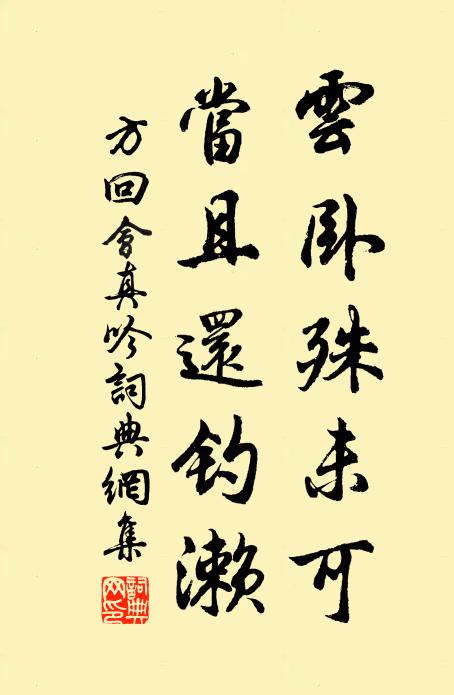 雲卧殊未可
當且還钓瀨
方回會真吟詞典網集
詞典網印